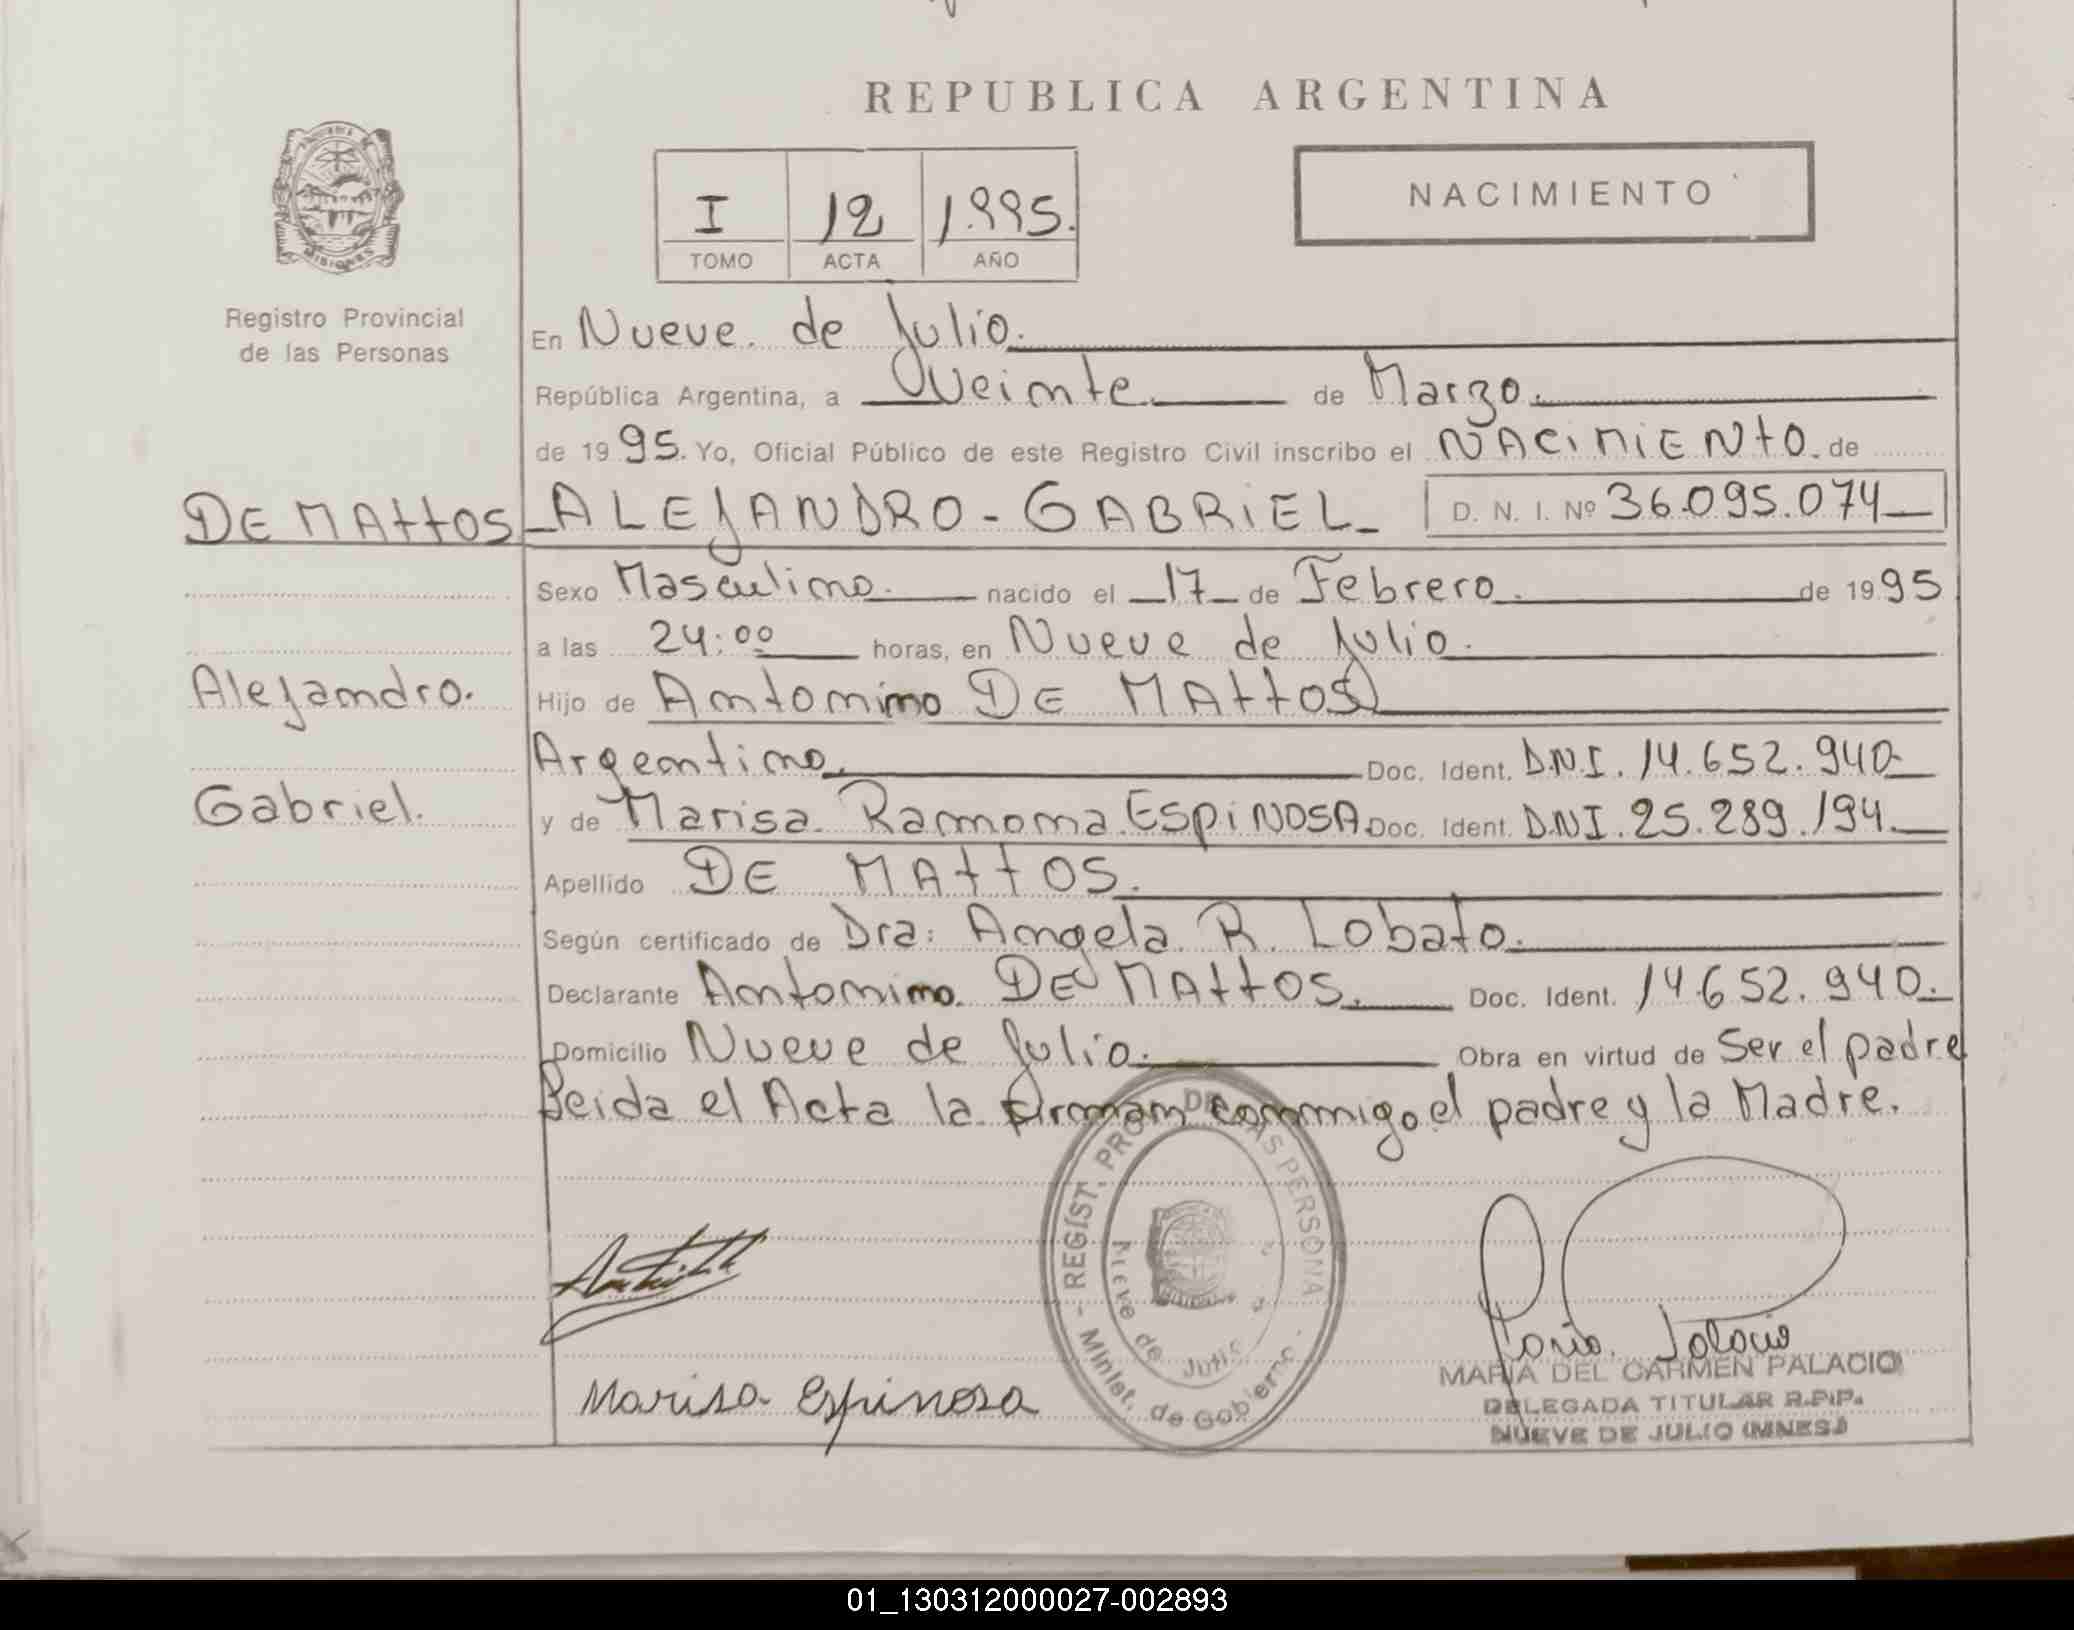 REPUBLICA ARGENTINA
NACIMIENTO
I 12 1.995.
TOMO ACTA AÑO
MISIONES
Registro Provincial
de las Personas
En Nueve de Julio.
República Argentina, a Veinte de Marzo.
de 1995. Yo, Oficial Público de este Registro Civil inscribo el NACIMIENTO. de
DE MATTOS - ALEJANDRO - GABRIEL - D. N. I. Nº 36.095.074
Sexo Masculino. nacido el 17 de Febrero. de 1995
a las 24:00 horas, en Nueve de Julio.
Alejandro. Hijo de Antonino DE MATTOS
Argentino. Doc. Ident. D.N.I. 14.652.940
Gabriel. y de Marisa Ramona ESPINOSA Doc. Ident. DNI. 25.289.194.
Apellido DE MATTOS.
Según certificado de Dra: Angela R. Lobato.
Declarante Antonino DE MATTOS. Doc. Ident. 14.652.940.
Domicilio Nueve de Julio. Obra en virtud de Ser el padre
Leida el Acta la firman conmigo el padre y la Madre.
REGIST. PROV. DE LAS PERSONAS
Nueve de Julio
Minist. de Gobierno
Marisa Espinosa
María Palacio
MARIA DEL CARMEN PALACIO
DELEGADA TITULAR R.P.P.
NUEVE DE JULIO (MNES.)
01_130312000027-002893